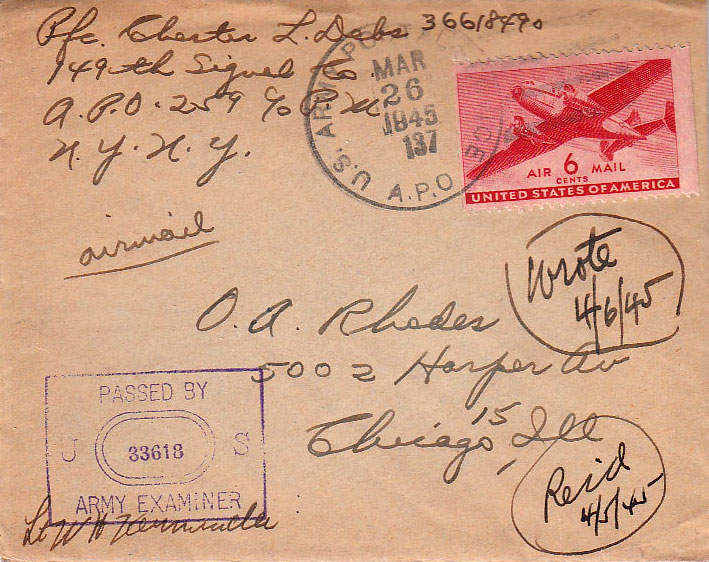 Pfc. Chester L. Dabs 36618490
149th Signal Co.
A.P.O. 259 c/o P.M.
N.Y. N.Y.
U.S. ARMY
A.P.O
MAR
26
1945
137
AIR 6 MAIL
CENTS
UNITED STATES OF AMERICA
airmail
Wrote
4/6/45
O.A. Rhedes
5002 Harper Av
Chicago, 15 Ill
PASSED BY
U 33618 S
ARMY EXAMINER
Lt W H
Reid
4/5/45